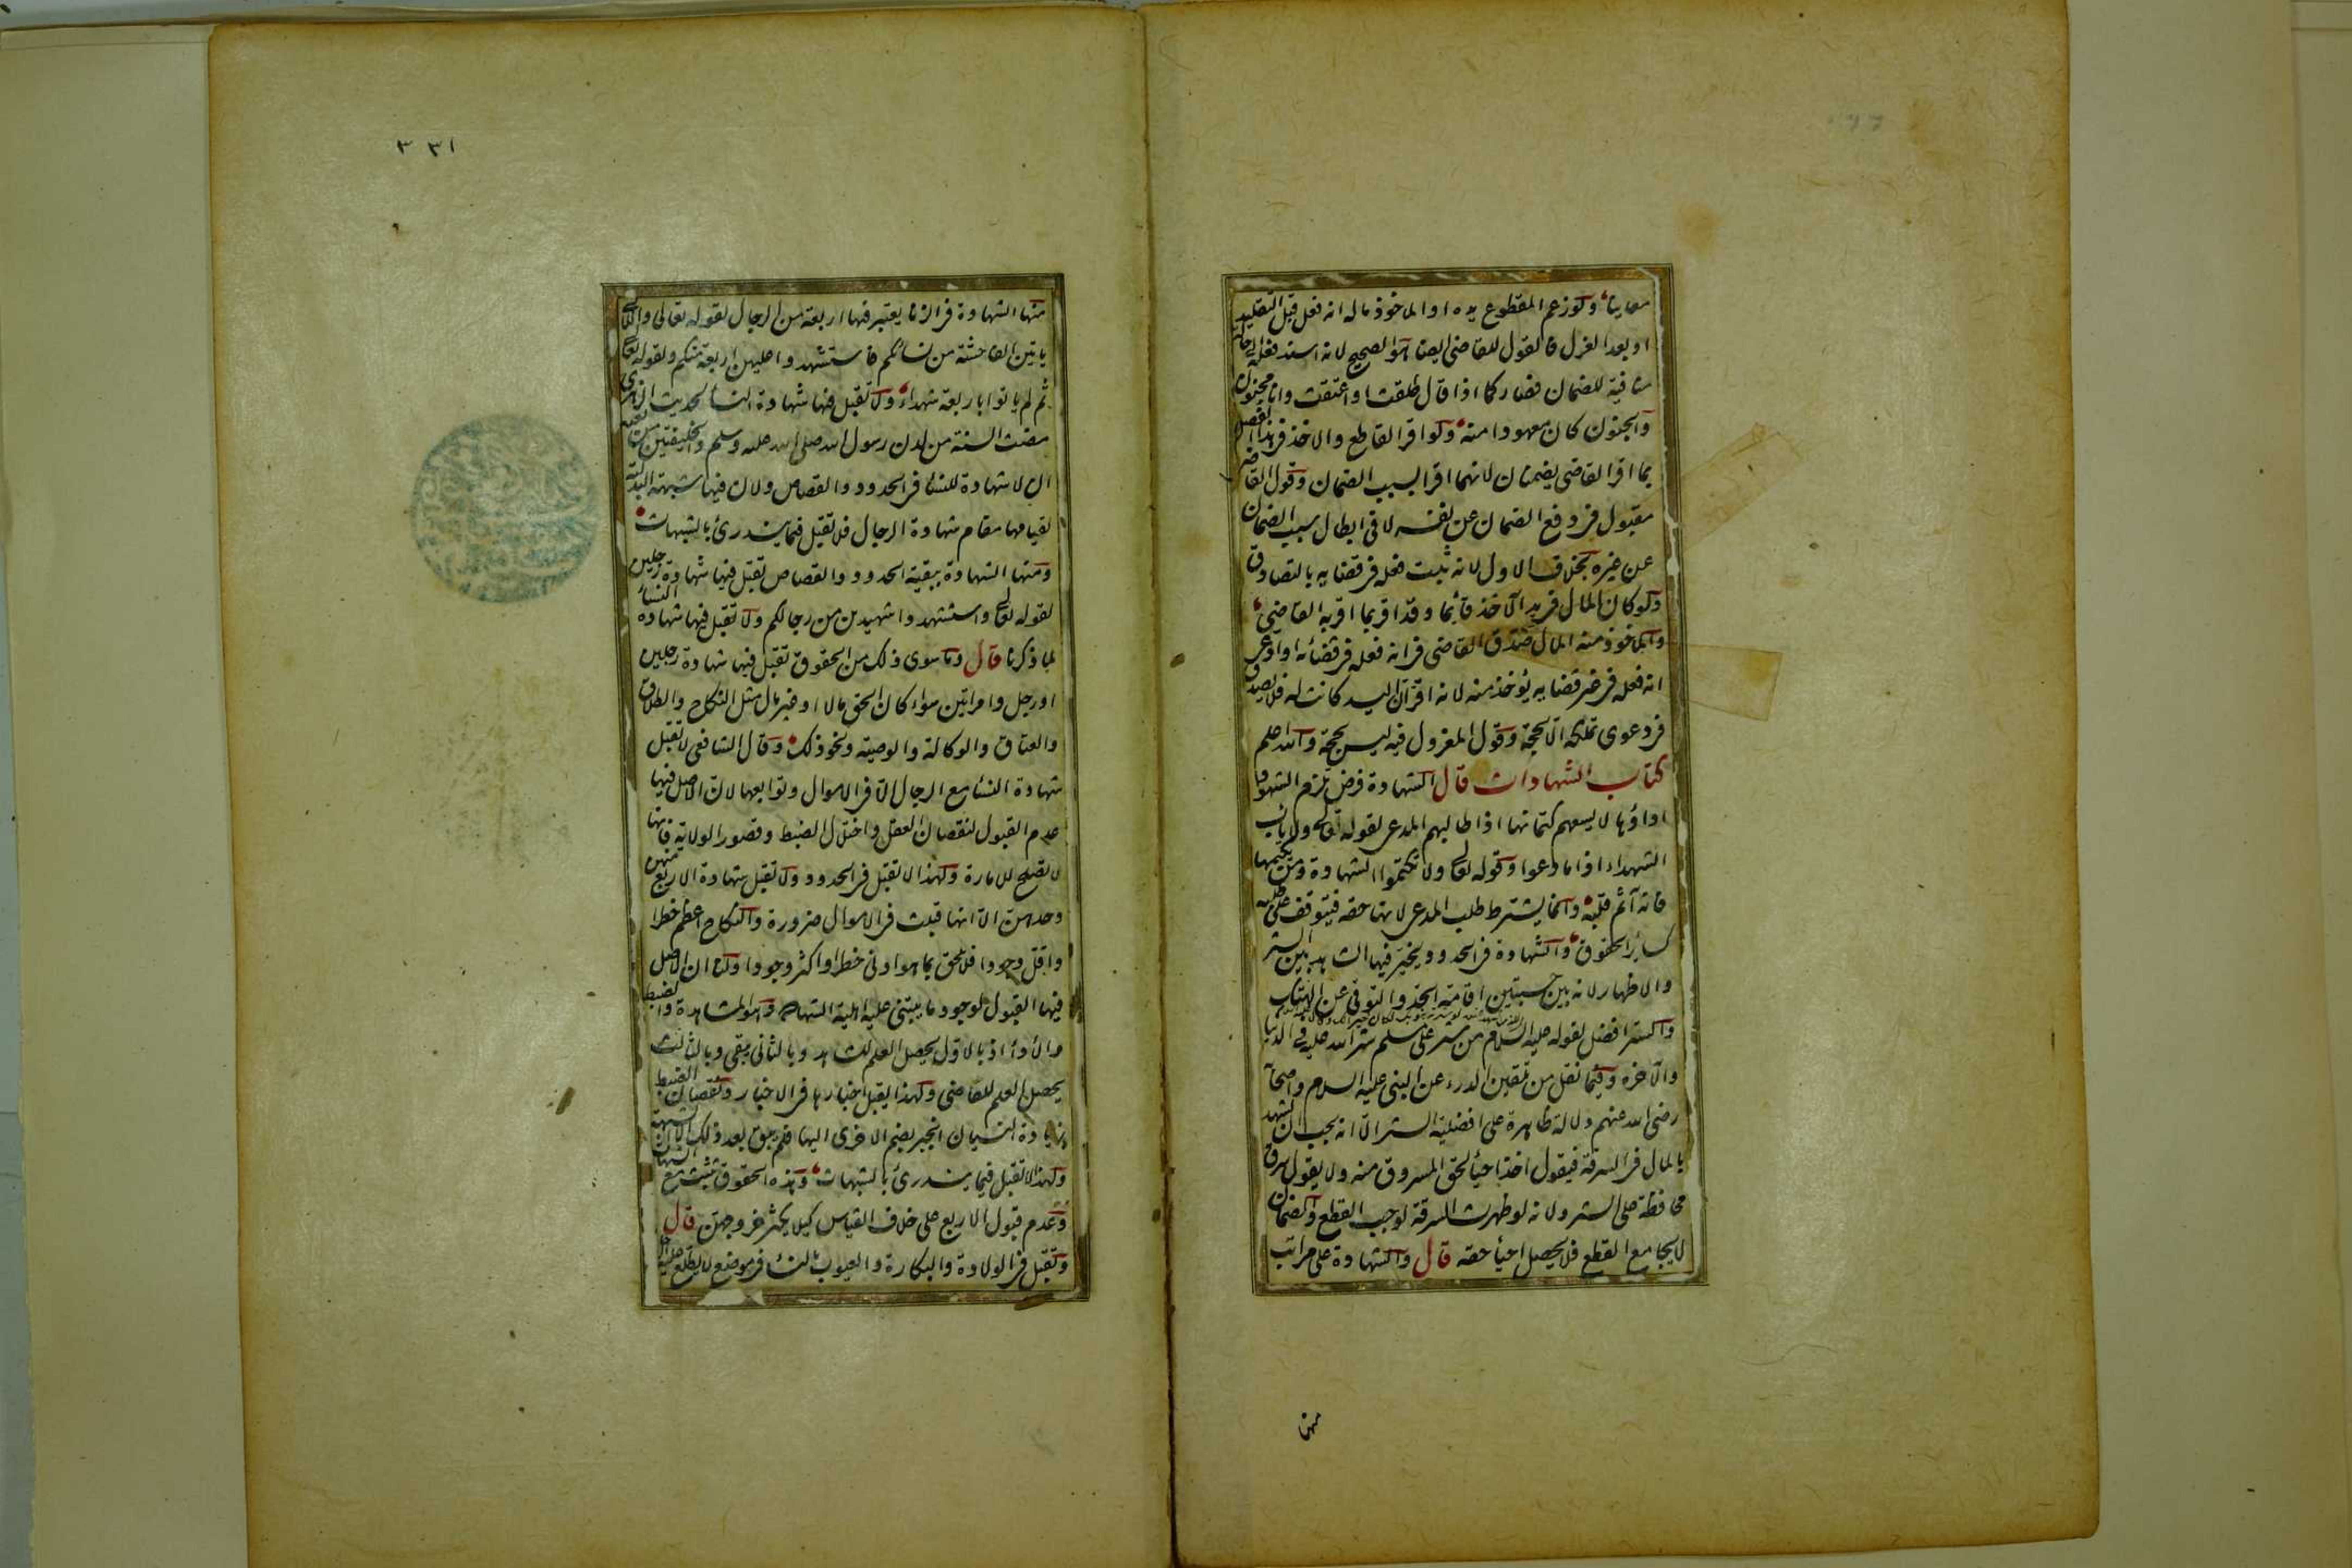 معاينا ولو زعم المقطوع يده او الماخوذ ماله انه فعل قبل التقليد
او بعد العزل فالقول للقاضي ايضا هو الصحيح لانه اسند فعله الى حالة
منافية للضمان فصار كما اذا قال طلقت او اعتقت وانا مجنون
والجنون كان معهودا منه ولو اقر القاطع والاخذ في هذا الفصل
بما اقر القاضي يضمنان لانهما اقرا بسبب الضمان وقول القاضي
مقبول في دفع الضمان عن نفسه لا في ابطال سبب الضمان
عن غيره بخلاف الاول لانه ثبت فعله في قضايه بالتصادق
ولو كان المال في يد الآخذ قائما وقد اقر بما اقر به القاضي
والماخوذ منه المال صدق القاضي في انه فعله في قضائه او ادعى
انه فعله في غير قضايه يؤخذ منه لانه اقر ان اليد كانت له فلا يصدق
في دعوى تملكه الا بحجة وقول المعزول فيه ليس بحجة والله اعلم
كتاب الشهادات قال الشهادة فرض تلزم الشهود
اداؤها لا يسعهم كتمانها اذا طالبهم المدعي لقوله تعالى ولا ياب
الشهداء اذا ما دعوا وقوله تعالى ولا تكتموا الشهادة ومن يكتمها
فانه آثم قلبه وانما يشترط طلب المدعي لانها حقه فيتوقف على طلبه
كسائر الحقوق والشهادة في الحدود يخير فيها الشاهد بين الستر
والاظهار لانه بين حسبتين اقامة الحد والتوقي عن الهتك
والستر افضل لقوله عليه السلام من ستر على مسلم ستر الله عليه في الدنيا
والآخرة وفيما نقل من تلقين الدرء عن النبي عليه السلام واصحابه
رضي الله عنهم دلالة ظاهرة على افضلية الستر الا انه يجب ان يشهد
بالمال في السرقة فيقول اخذ احياء لحق المسروق منه ولا يقول سرق
محافظة على الستر ولانه لو ظهرت السرقة لوجب القطع والضمان
لا يجامع القطع فلا يحصل احياء حقه قال والشهادة على مراتب
منها
٣٣١
منها الشهادة في الزنا يعتبر فيها اربعة من الرجال لقوله تعالى واللاتي
ياتين الفاحشة من نسائكم فاستشهدوا عليهن اربعة منكم ولقوله تعالى
ثم لم ياتوا باربعة شهداء ولا تقبل فيها شهادة النساء لحديث الزهري
مضت السنة من لدن رسول الله صلى الله عليه وسلم والخليفتين من بعده
ان لا شهادة للنساء في الحدود والقصاص ولان فيها شبهة البدلية
لقيامها مقام شهادة الرجال فلا تقبل فيما يندرئ بالشبهات
ومنها الشهادة ببقية الحدود والقصاص تقبل فيها شهادة رجلين
لقوله تعالى واستشهدوا شهيدين من رجالكم ولا تقبل فيها شهادة النساء
لما ذكرنا قال وما سوى ذلك من الحقوق تقبل فيها شهادة رجلين
او رجل وامراتين سواء كان الحق مالا او غير مال مثل النكاح والطلاق
والعتاق والوكالة والوصية ونحو ذلك وقال الشافعي لا تقبل
شهادة النساء مع الرجال الا في الاموال وتوابعها لان الاصل فيها
عدم القبول لنقصان العقل واختلال الضبط وقصور الولاية فانها
لا تصلح للامارة ولهذا لا تقبل في الحدود ولا تقبل شهادة الاربع منهن
وحدهن الا انها قبلت في الاموال ضرورة والنكاح اعظم خطرا
واقل وجودا فلا يلحق بما هو ادنى خطرا واكثر وجودا ولنا ان الاصل
فيها القبول لوجود ما يبتني عليه اهلية الشهادة وهو المشاهدة والضبط
والاداء اذ بالاول يحصل العلم للشاهد وبالثاني يبقى وبالثالث
يحصل العلم للقاضي ولهذا يقبل اخبارها في الاخبار ونقصان الضبط
بزيادة النسيان انجبر بضم الاخرى اليها فلم يبق بعد ذلك الا الشبهة
ولهذا لا تقبل فيما يندرئ بالشبهات وهذه الحقوق تثبت مع الشبهات
وعدم قبول الاربع على خلاف القياس كيلا يكثر خروجهن قال
وتقبل في الولادة والبكارة والعيوب بالنساء في موضع لا يطلع عليه